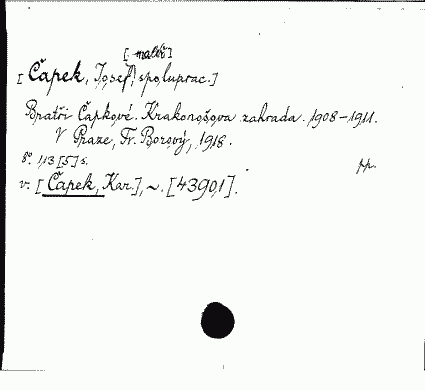 [malíř]
[Čapek, Josef, spoluprac.]
Bratři Čapkové. Krakonošova zahrada. 1908-1911.
V Praze, Fr. Borový, 1918.
8°. 113 [5] s.
pp.
v: [Čapek, Kar.], ~. [43901].